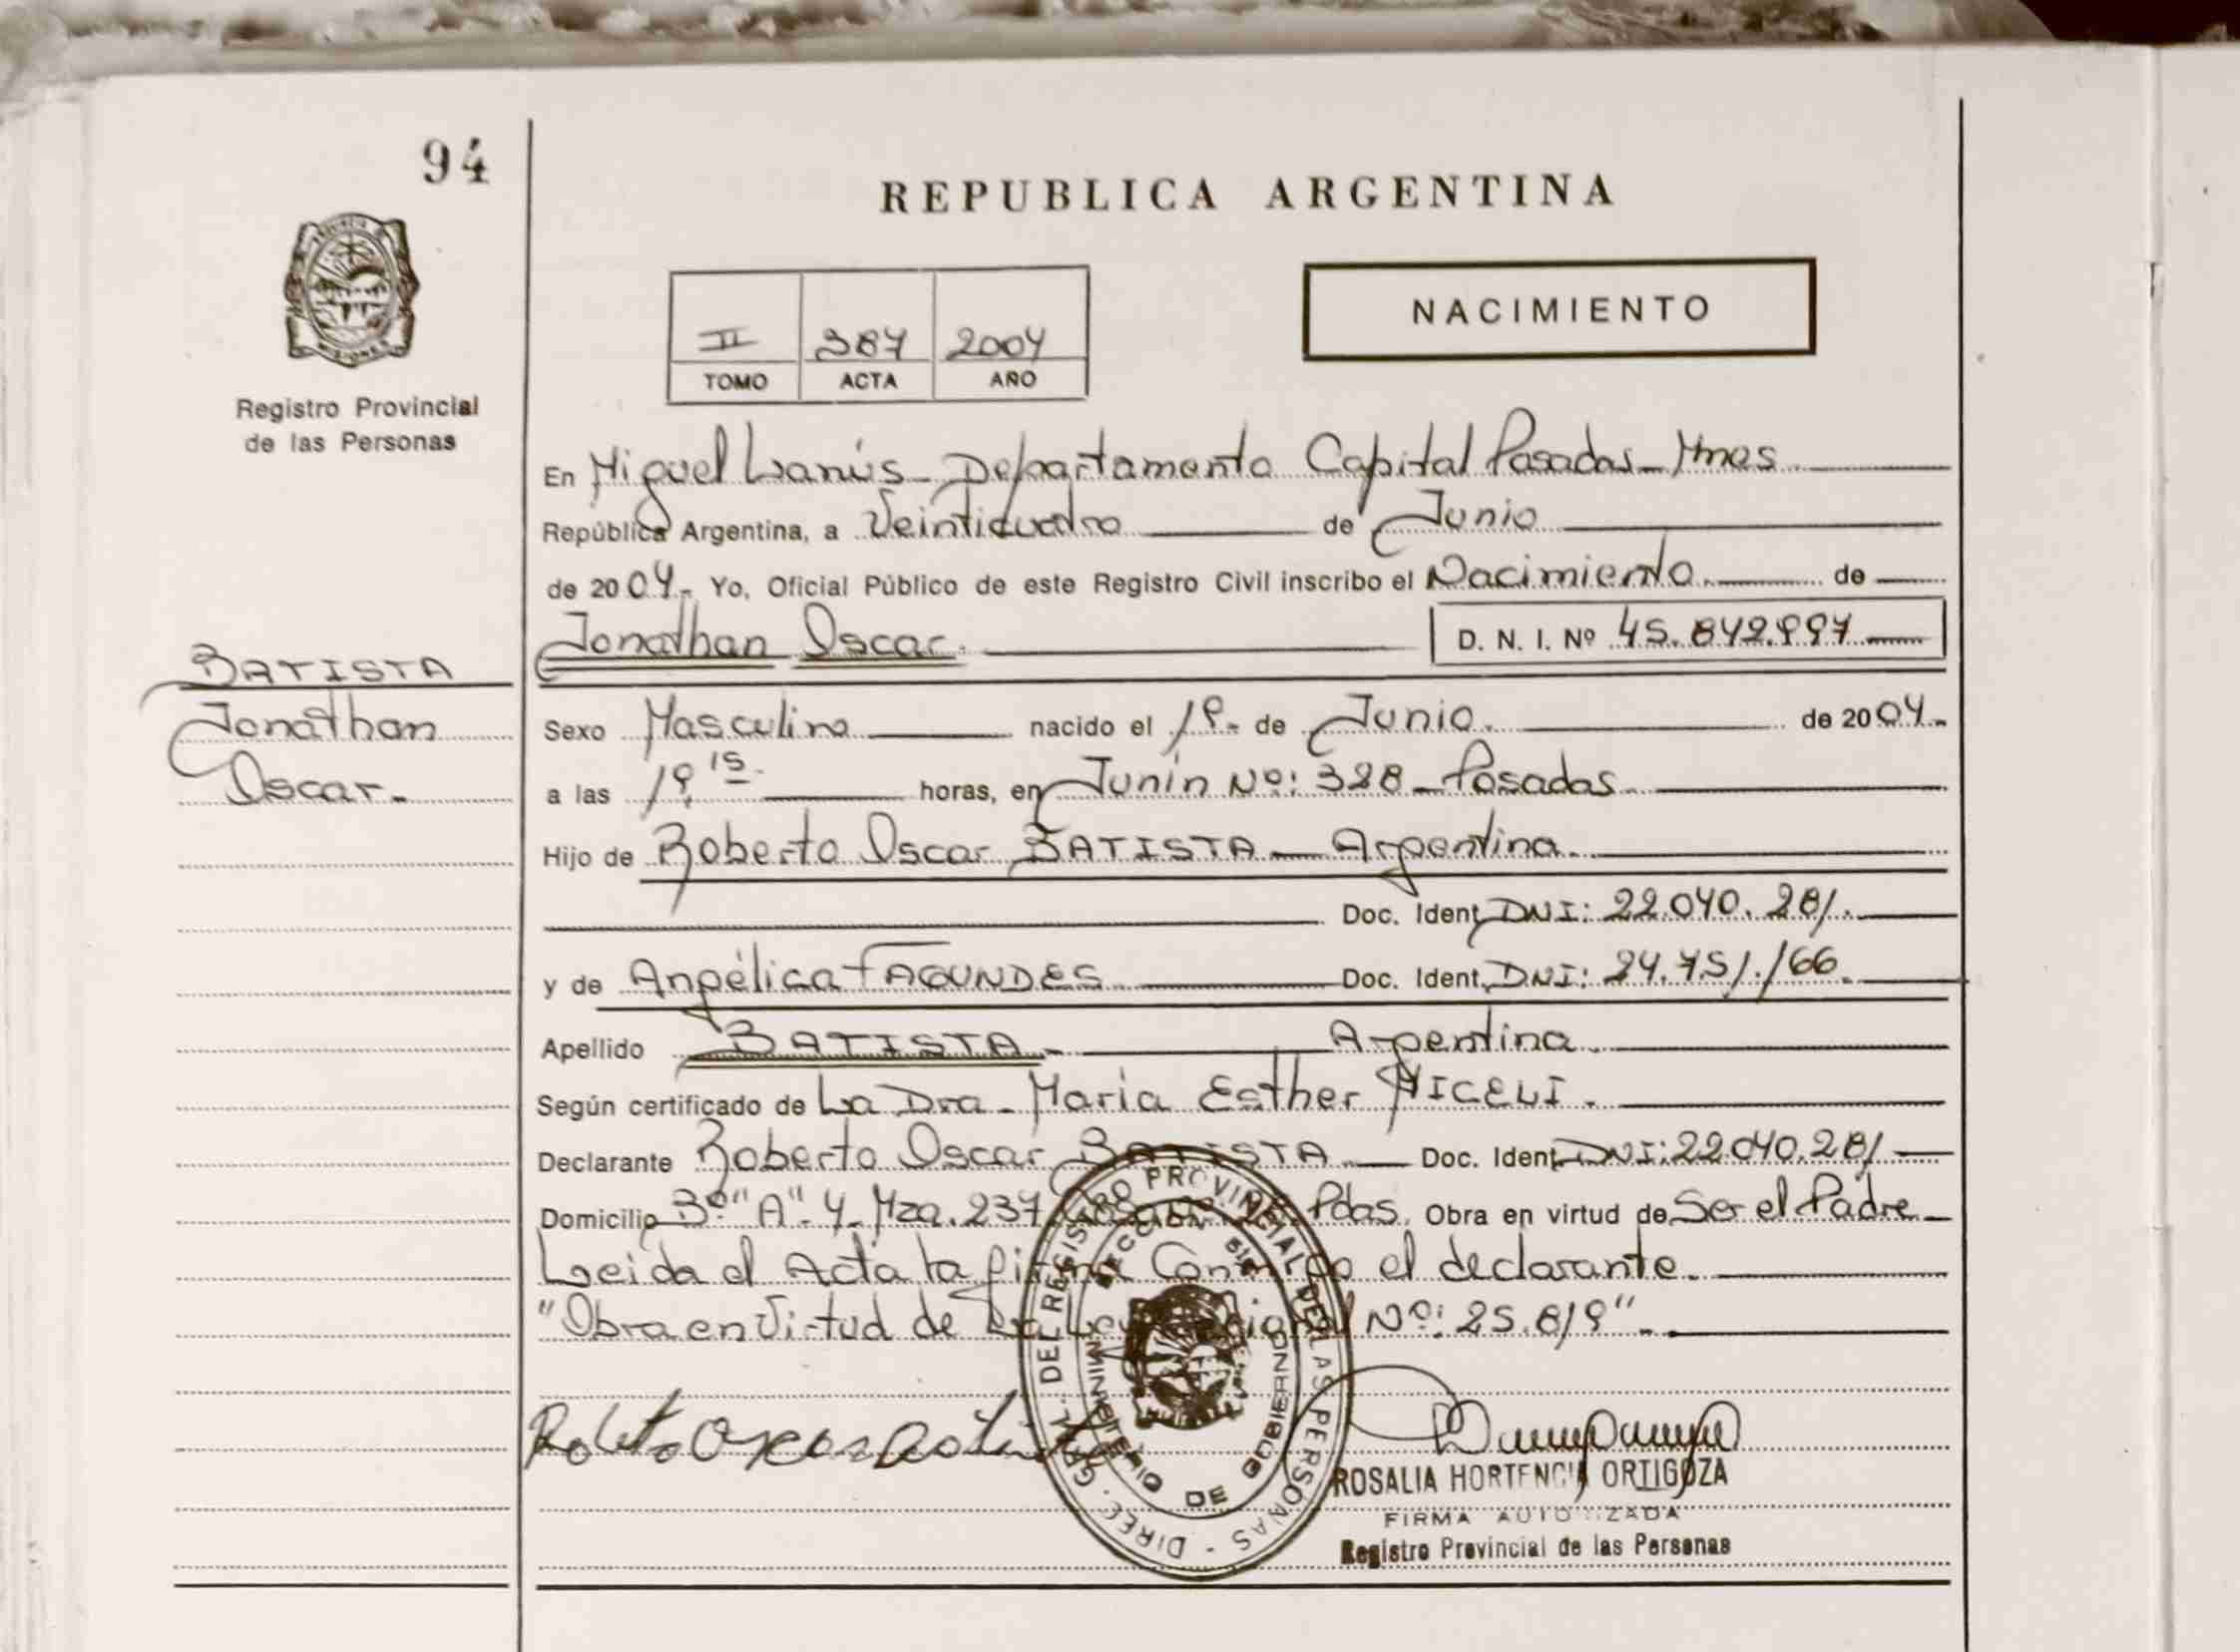 94
REPUBLICA ARGENTINA
NACIMIENTO
II 387 2004
TOMO ACTA AÑO
MISIONES
Registro Provincial
de las Personas
En Miguel Lanús - Departamento Capital Posadas - Mnes
República Argentina, a Veinticuatro de Junio
de 2004.- Yo, Oficial Público de este Registro Civil inscribo el Nacimiento. de
Jonathan Oscar. D. N. I. Nº 45.842.997
BATISTA
Jonathan
Oscar.-
Sexo Masculino nacido el 19.- de Junio. de 2004.-
a las 19,15. horas, en Junín Nº: 328 - Posadas.
Hijo de Roberto Oscar BATISTA - Argentina.
Doc. Ident. DNI: 22.040.281.
y de Angélica FAGUNDES Doc. Ident. DNI: 24.751.166.
Apellido BATISTA.- Argentina.
Según certificado de La Dra. María Esther MICELI.
Declarante Roberto Oscar BATISTA Doc. Ident. DNI: 22.040.281
Domicilio Bº "A" 4 - Mza. 237 Pdas. Obra en virtud de Ser el Padre
Leida el Acta la firma Conmigo el declarante.
"Obra en Virtud de La Ley Nº: 25.819".
DIREC. GRAL. DEL REGISTRO PROVINCIAL DE LAS PERSONAS
MINISTERIO DE GOBIERNO
ROSALIA HORTENCIA ORTIGOZA
FIRMA AUTORIZADA
Registro Provincial de las Personas